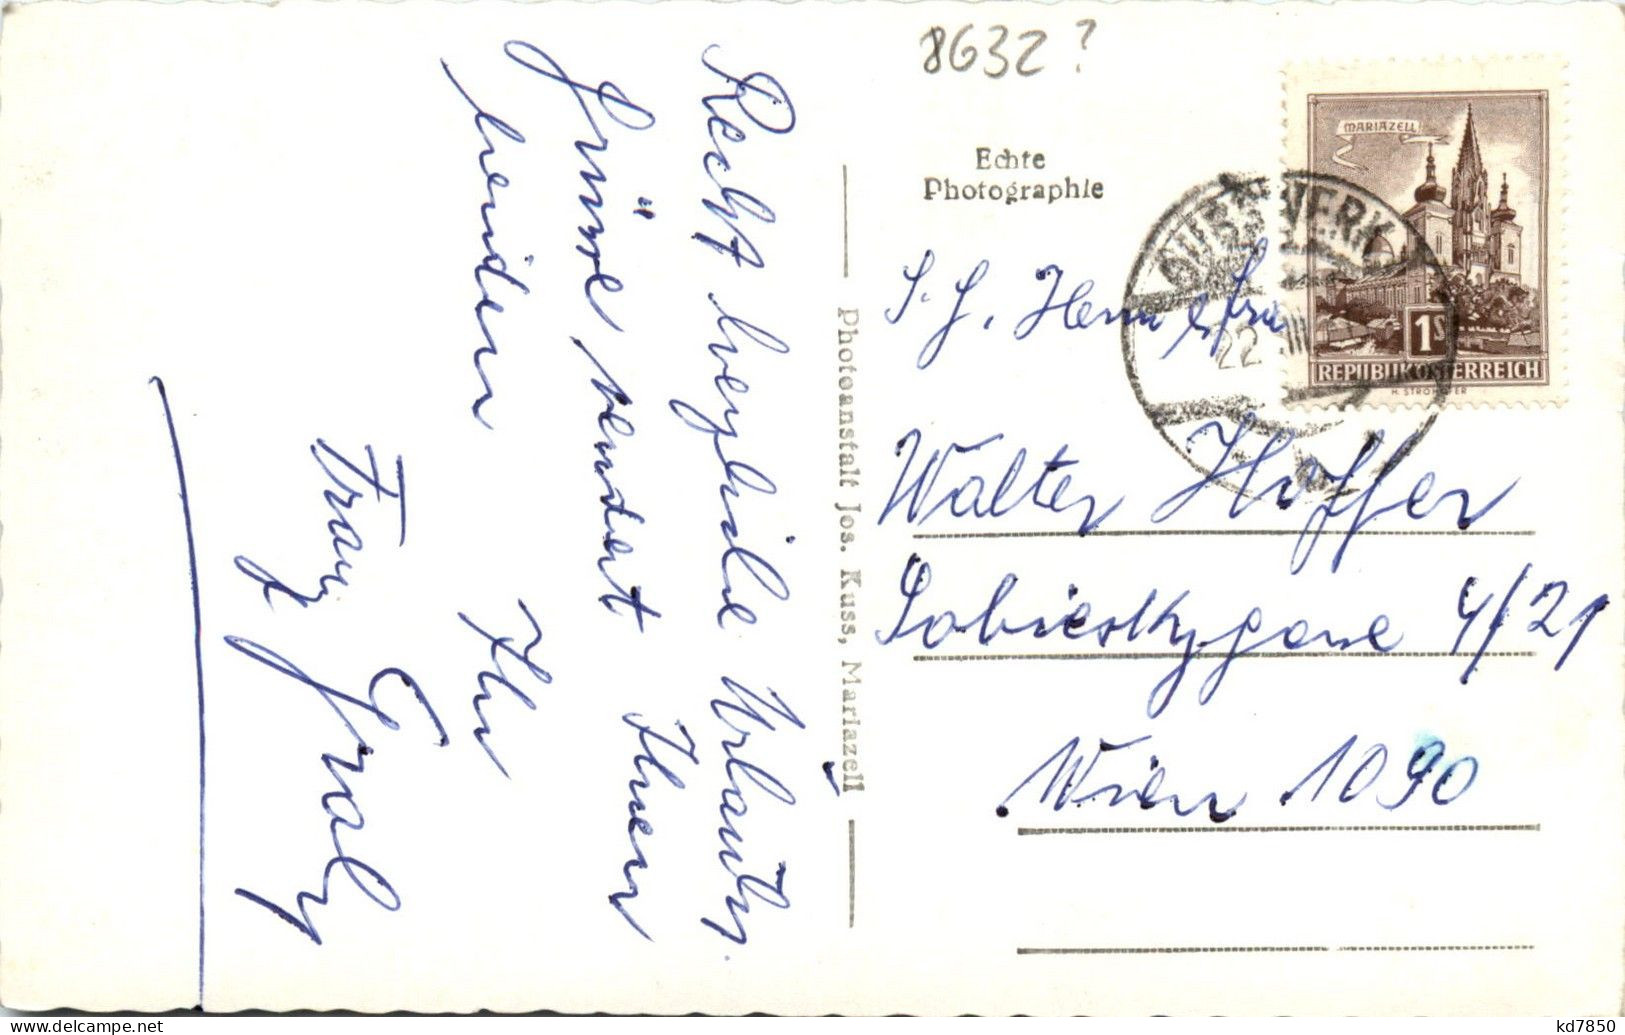 8632?
Echte
Photographie
MARIAZELL
1S
REPUBLIK ÖSTERREICH
H. STROHOFER
GUSSWERK
22
S. g. Herrn & Frau
Walter Hoffer
Sobieskygasse 4/21
Wien 1090
Photoanstalt Jos. Kuss, Mariazell
Recht herzliche Urlaubs
Grüsse sendet Ihnen
beiden Ihr
Franz Graly
kd7850